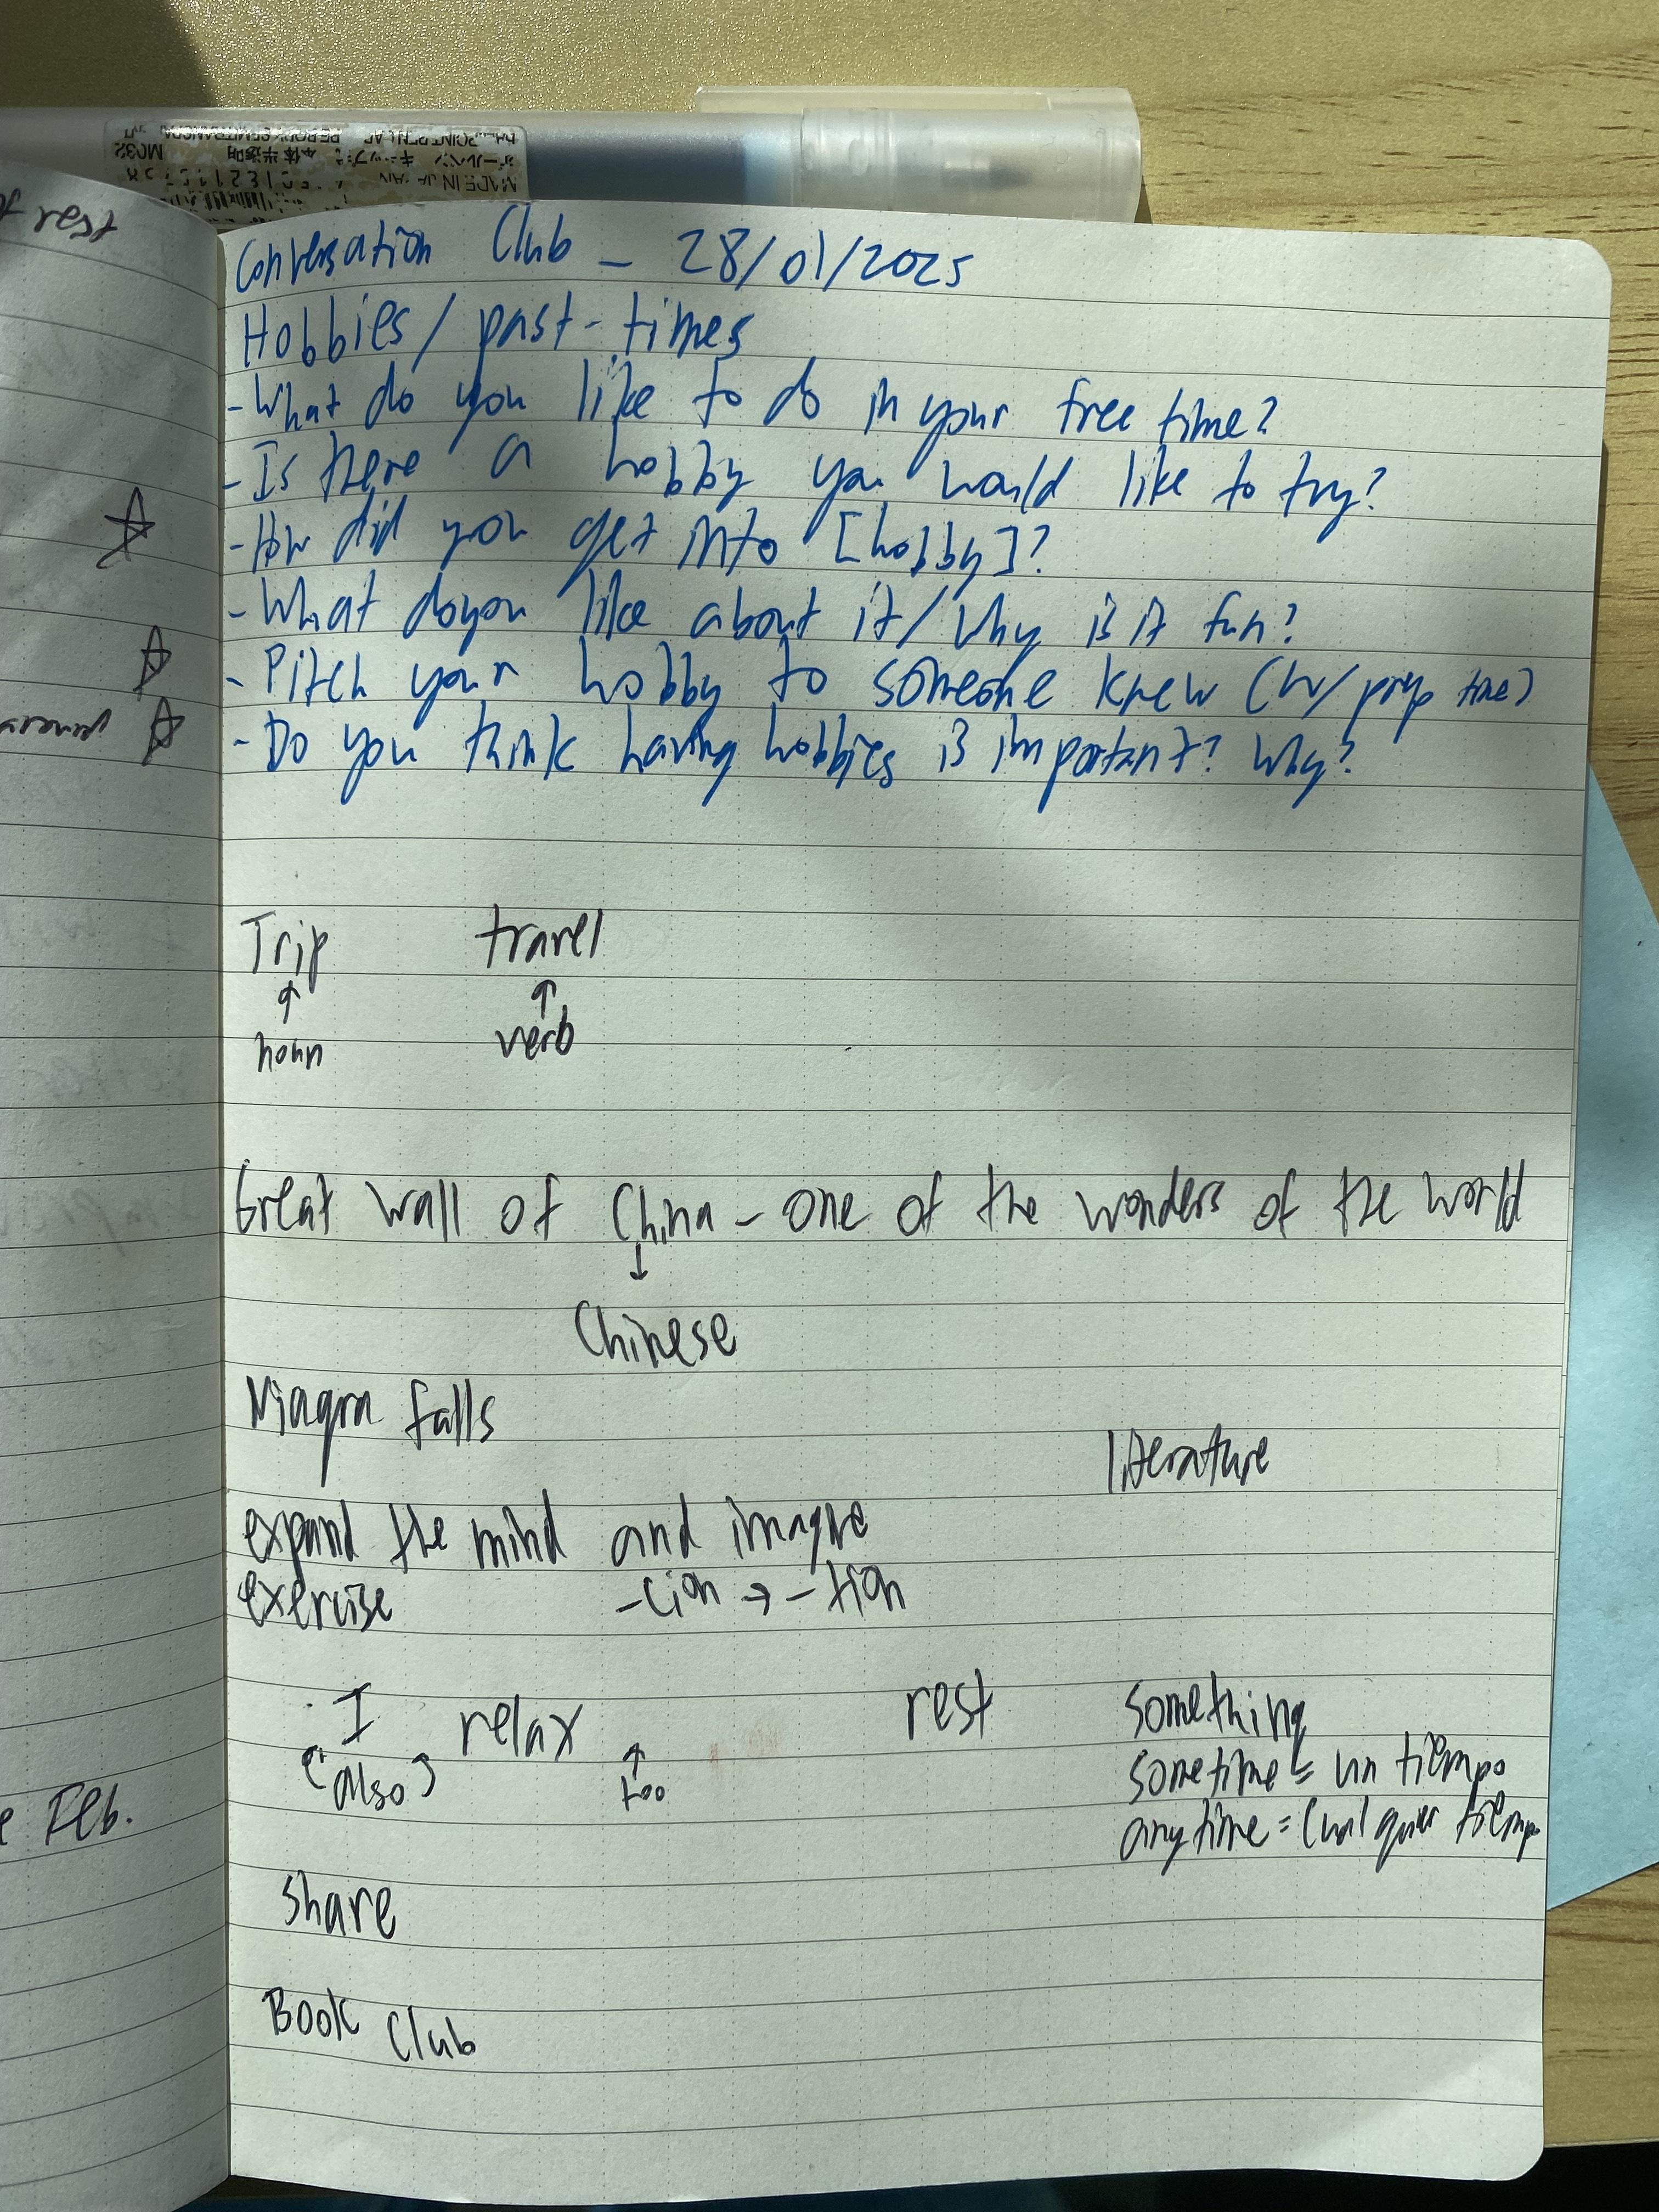 MADE IN JAPAN
MC32
rest
Conversation Club - 28/01/2025
Hobbies/past-times
-What do you like to do in your free time?
-Is there a hobby you would like to try?
-How did you get into [hobby]?
-What do you like about it/Why is it fun?
-Pitch your hobby to someone knew (w/prep time)
-Do you think having hobbies is important? Why?
Trip travel
noun verb
Great wall of China - one of the wonders of the world
Chinese
Niagra falls
literature
expand the mind and imagine
exercise -cion → -tion
I relax rest something
(also) too sometime = un tiempo
anytime = Cualquier tiempo
Feb.
share
Book Club